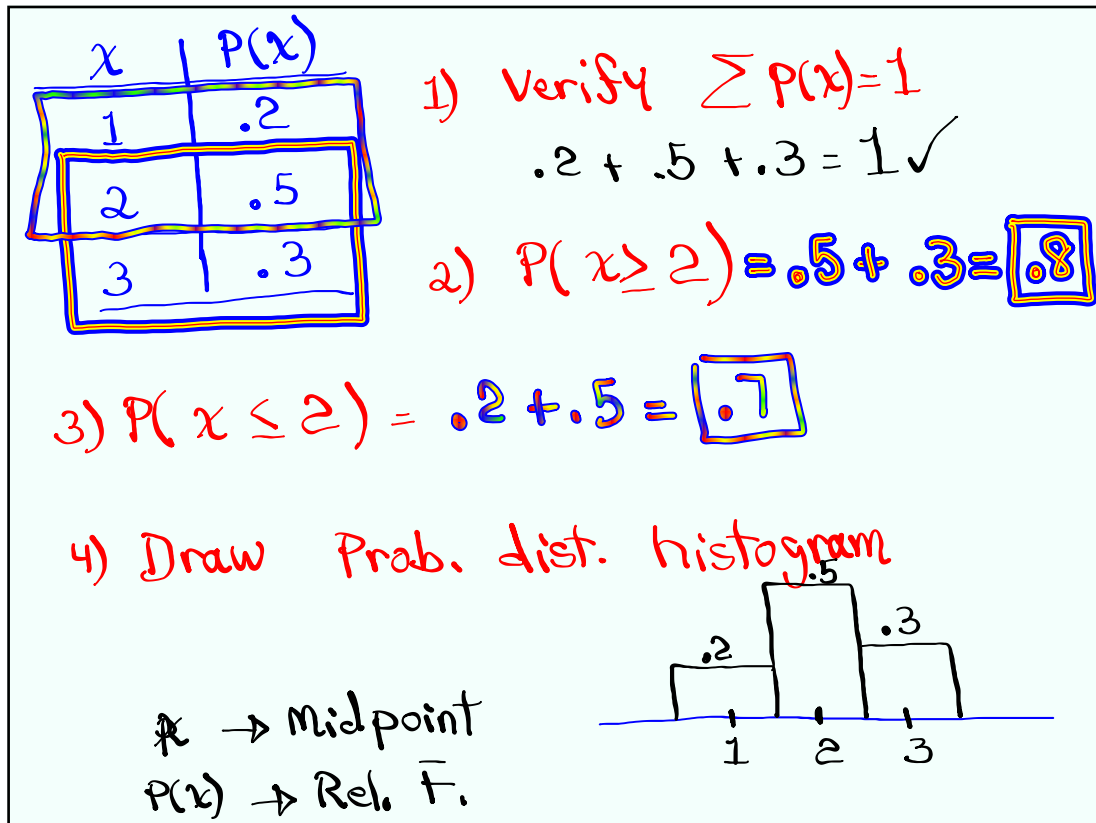 x | P(x)
1 | .2
2 | .5
3 | .3
1) Verify Σ P(x)=1
.2 + .5 + .3 = 1 ✓
2) P(x ≥ 2) = .5 + .3 = .8
3) P(x ≤ 2) = .2 + .5 = .7
4) Draw Prob. dist. histogram
.2 .5 .3
1 2 3
→ Midpoint
P(x) → Rel. F.